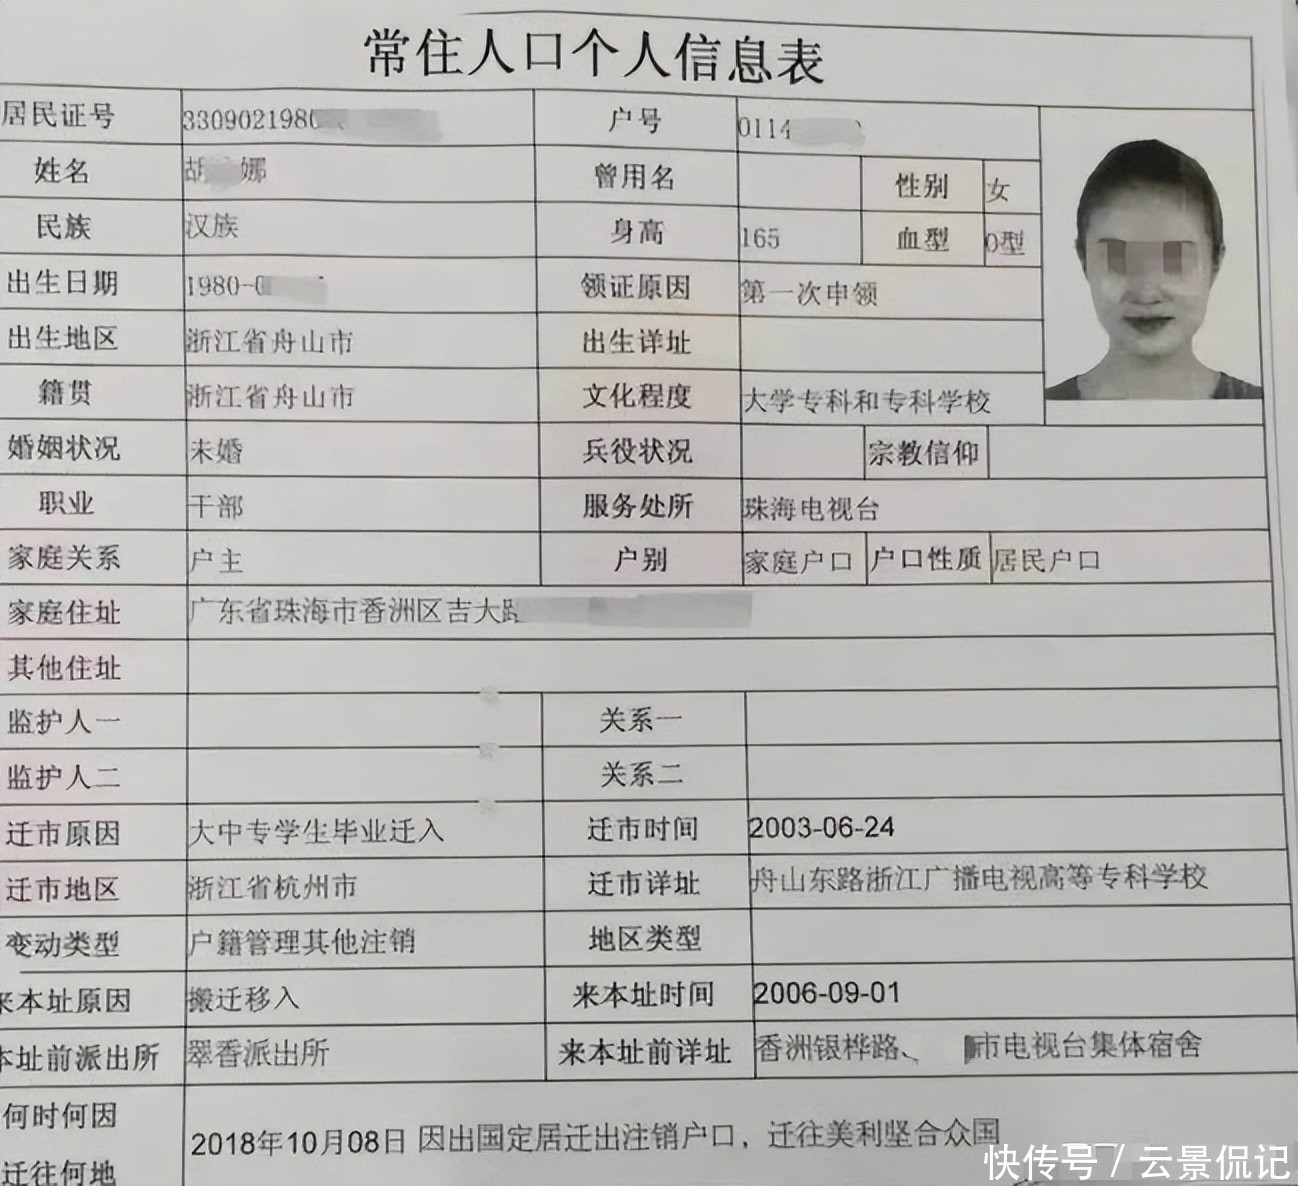 常住人口个人信息表
居民证号 330902198 户号 0114
姓名 胡 娜 曾用名 性别 女
民族 汉族 身高 165 血型 O型
出生日期 1980-0 领证原因 第一次申领
出生地区 浙江省舟山市 出生详址
籍贯 浙江省舟山市 文化程度 大学专科和专科学校
婚姻状况 未婚 兵役状况 宗教信仰
职业 干部 服务处所 珠海电视台
家庭关系 户主 户别 家庭户口 户口性质 居民户口
家庭住址 广东省珠海市香洲区吉大路
其他住址
监护人一 关系一
监护人二 关系二
迁市原因 大中专学生毕业迁入 迁市时间 2003-06-24
迁市地区 浙江省杭州市 迁市详址 舟山东路浙江广播电视高等专科学校
变动类型 户籍管理其他注销 地区类型
来本址原因 搬迁移入 来本址时间 2006-09-01
本址前派出所 翠香派出所 来本址前详址 香洲银桦路、 市电视台集体宿舍
何时何因
迁往何地 2018年10月08日 因出国定居迁出注销户口，迁往美利坚合众国
快传号 / 云景侃记